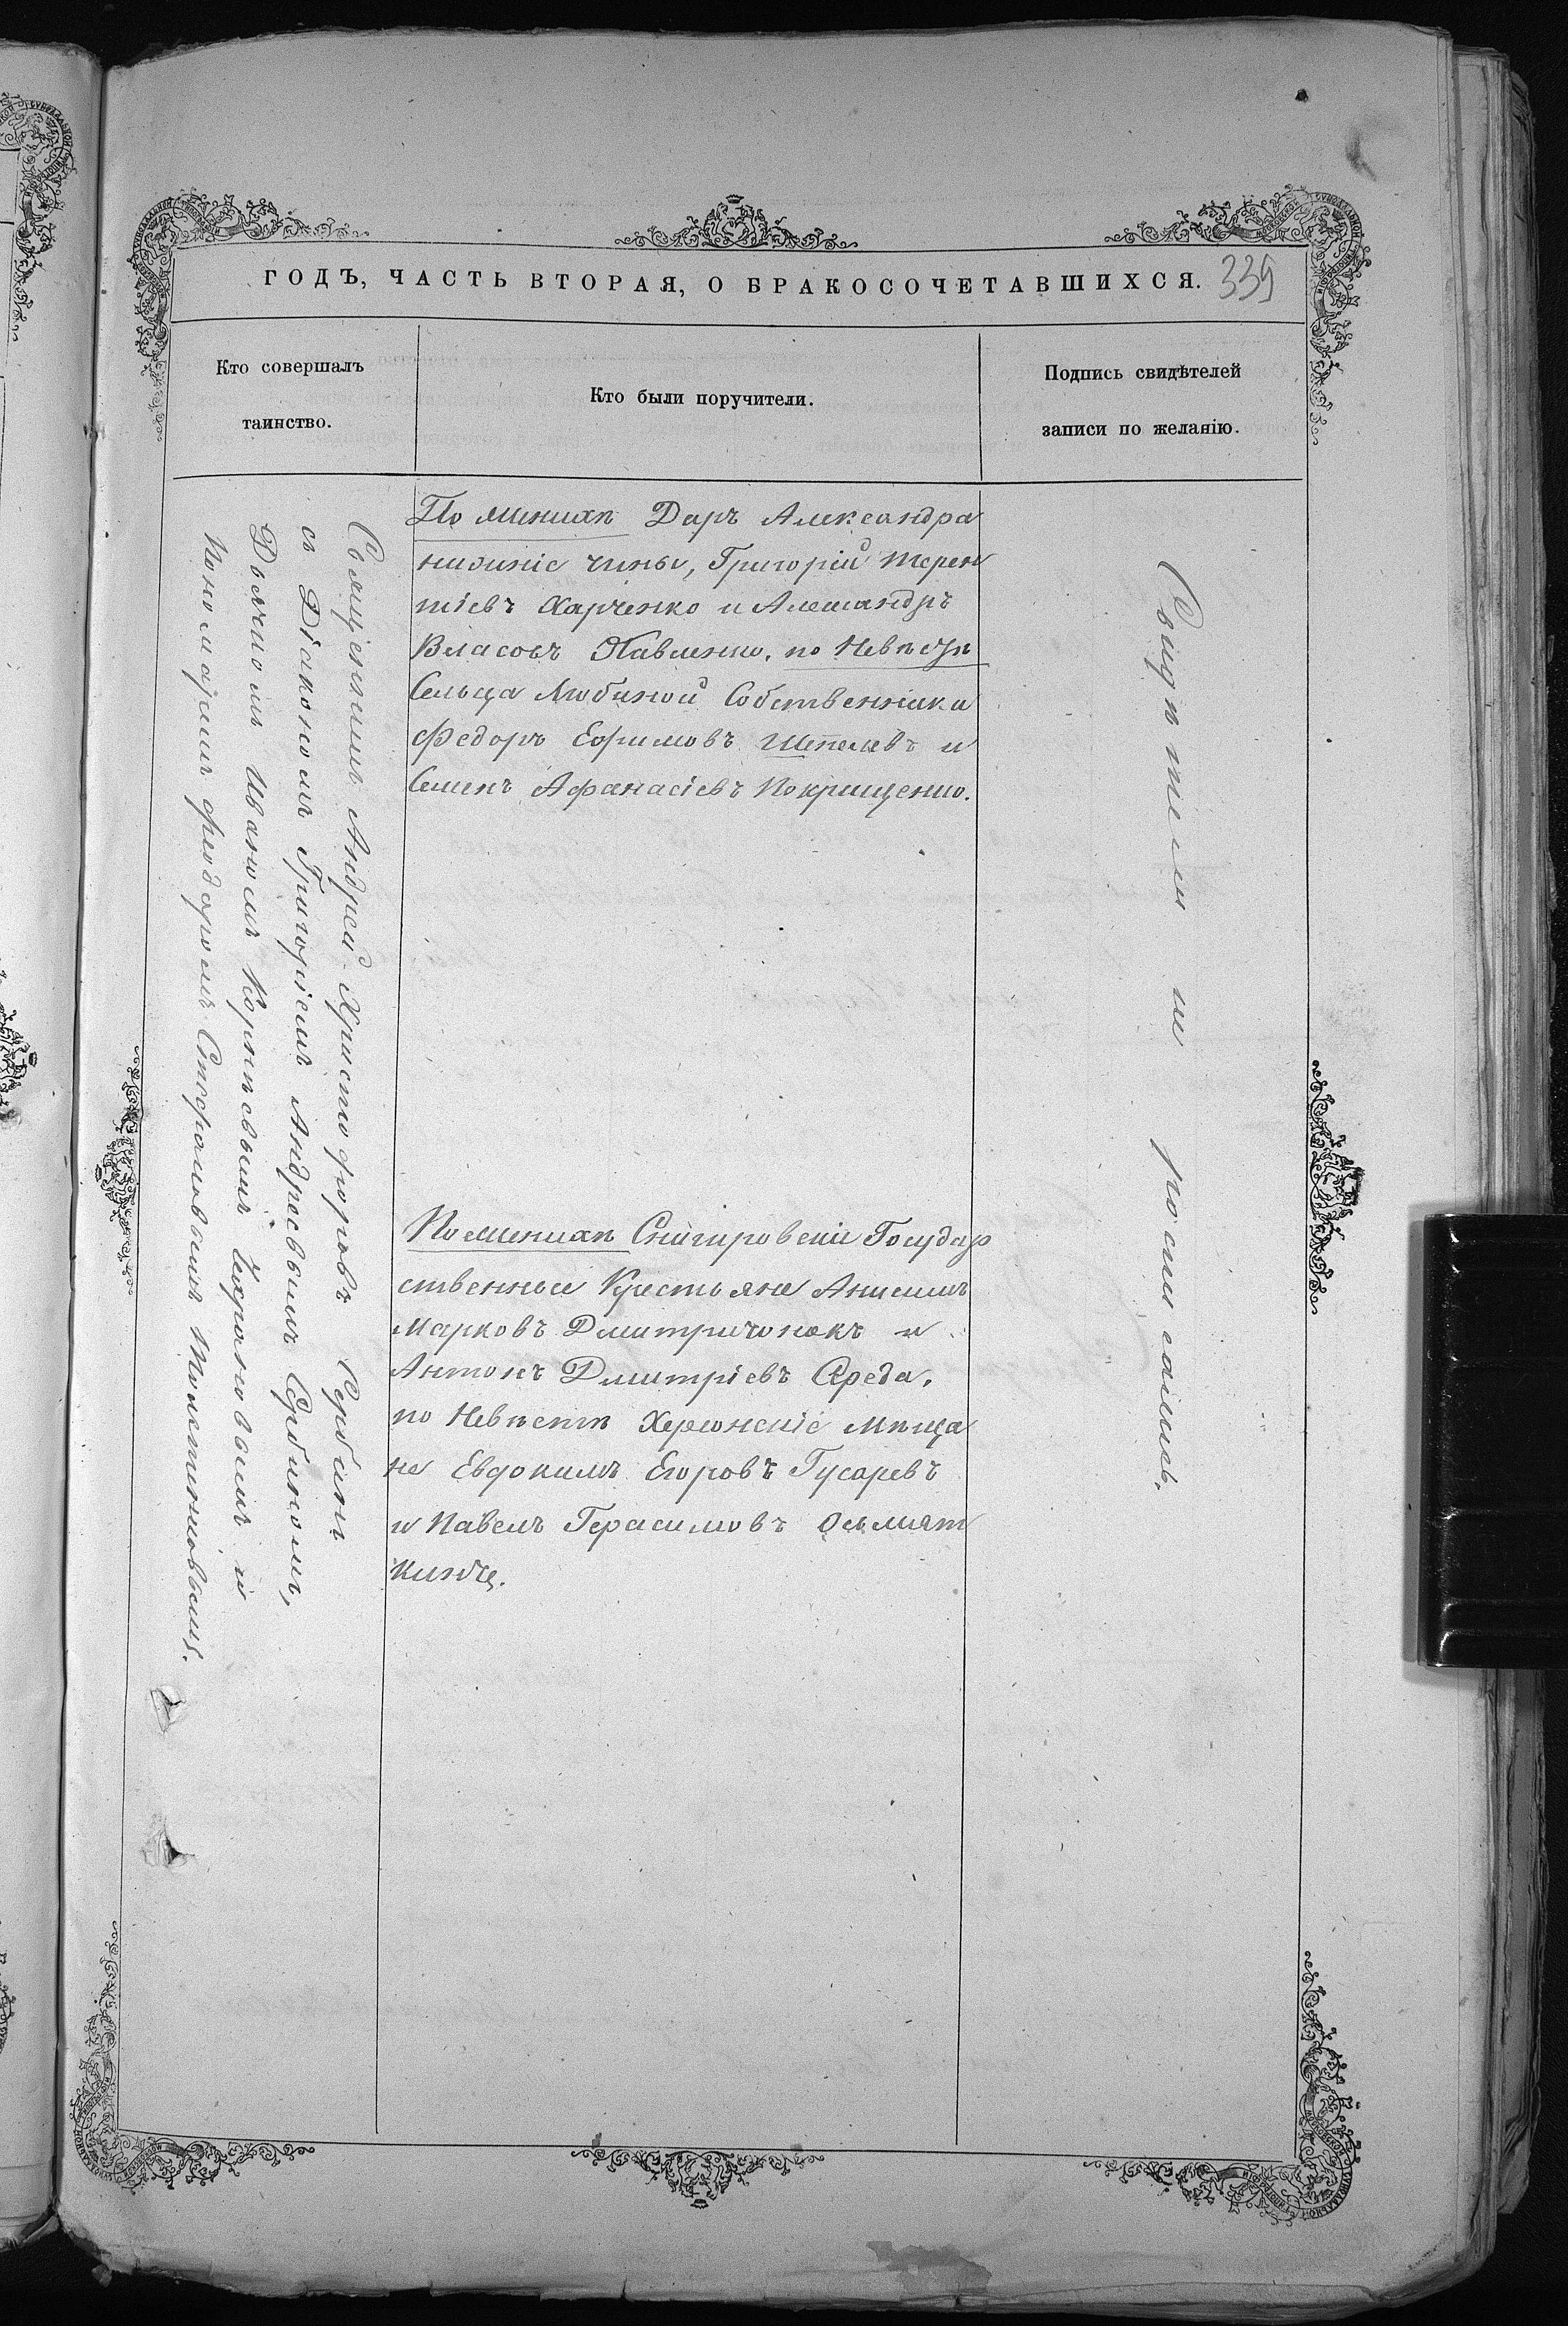 ГОДЪ, ЧАСТЬ ВТОРАЯ, О БРАКОСОЧЕТАВШИХСЯ. 339
Кто совершалъ
таинство.
Кто были поручители.
Подпись свидѣтелей
записи по желанію.
Священникъ Андрей Христофоровъ Сербинъ
съ Діакономъ Григоріемъ Андреевымъ Сербиномъ,
Дьячкомъ Иваномъ Корнѣевымъ и
Пономаремъ Феодоромъ Стефановымъ
По женихѣ Дарь Александра
нижніе чины, Григорій Терен
тіевъ Харченко и Александръ
Власовъ Павленко, по Невѣстѣ
Сельца Любиной Собственники
Федоръ Ефимовъ Шепелевъ и
Семенъ Афанасіевъ Покрищенко.
По женихѣ Снигировскіе Государ
ственные Крестьяне Анисимъ
Марковъ Дмитриченокъ и
Антонъ Дмитріевъ Середа,
по Невѣстѣ Херсонскіе Мѣща
не Евдокимъ Егоровъ Гусаревъ
и Павелъ Герасимовъ
Свидѣтели не росписались.